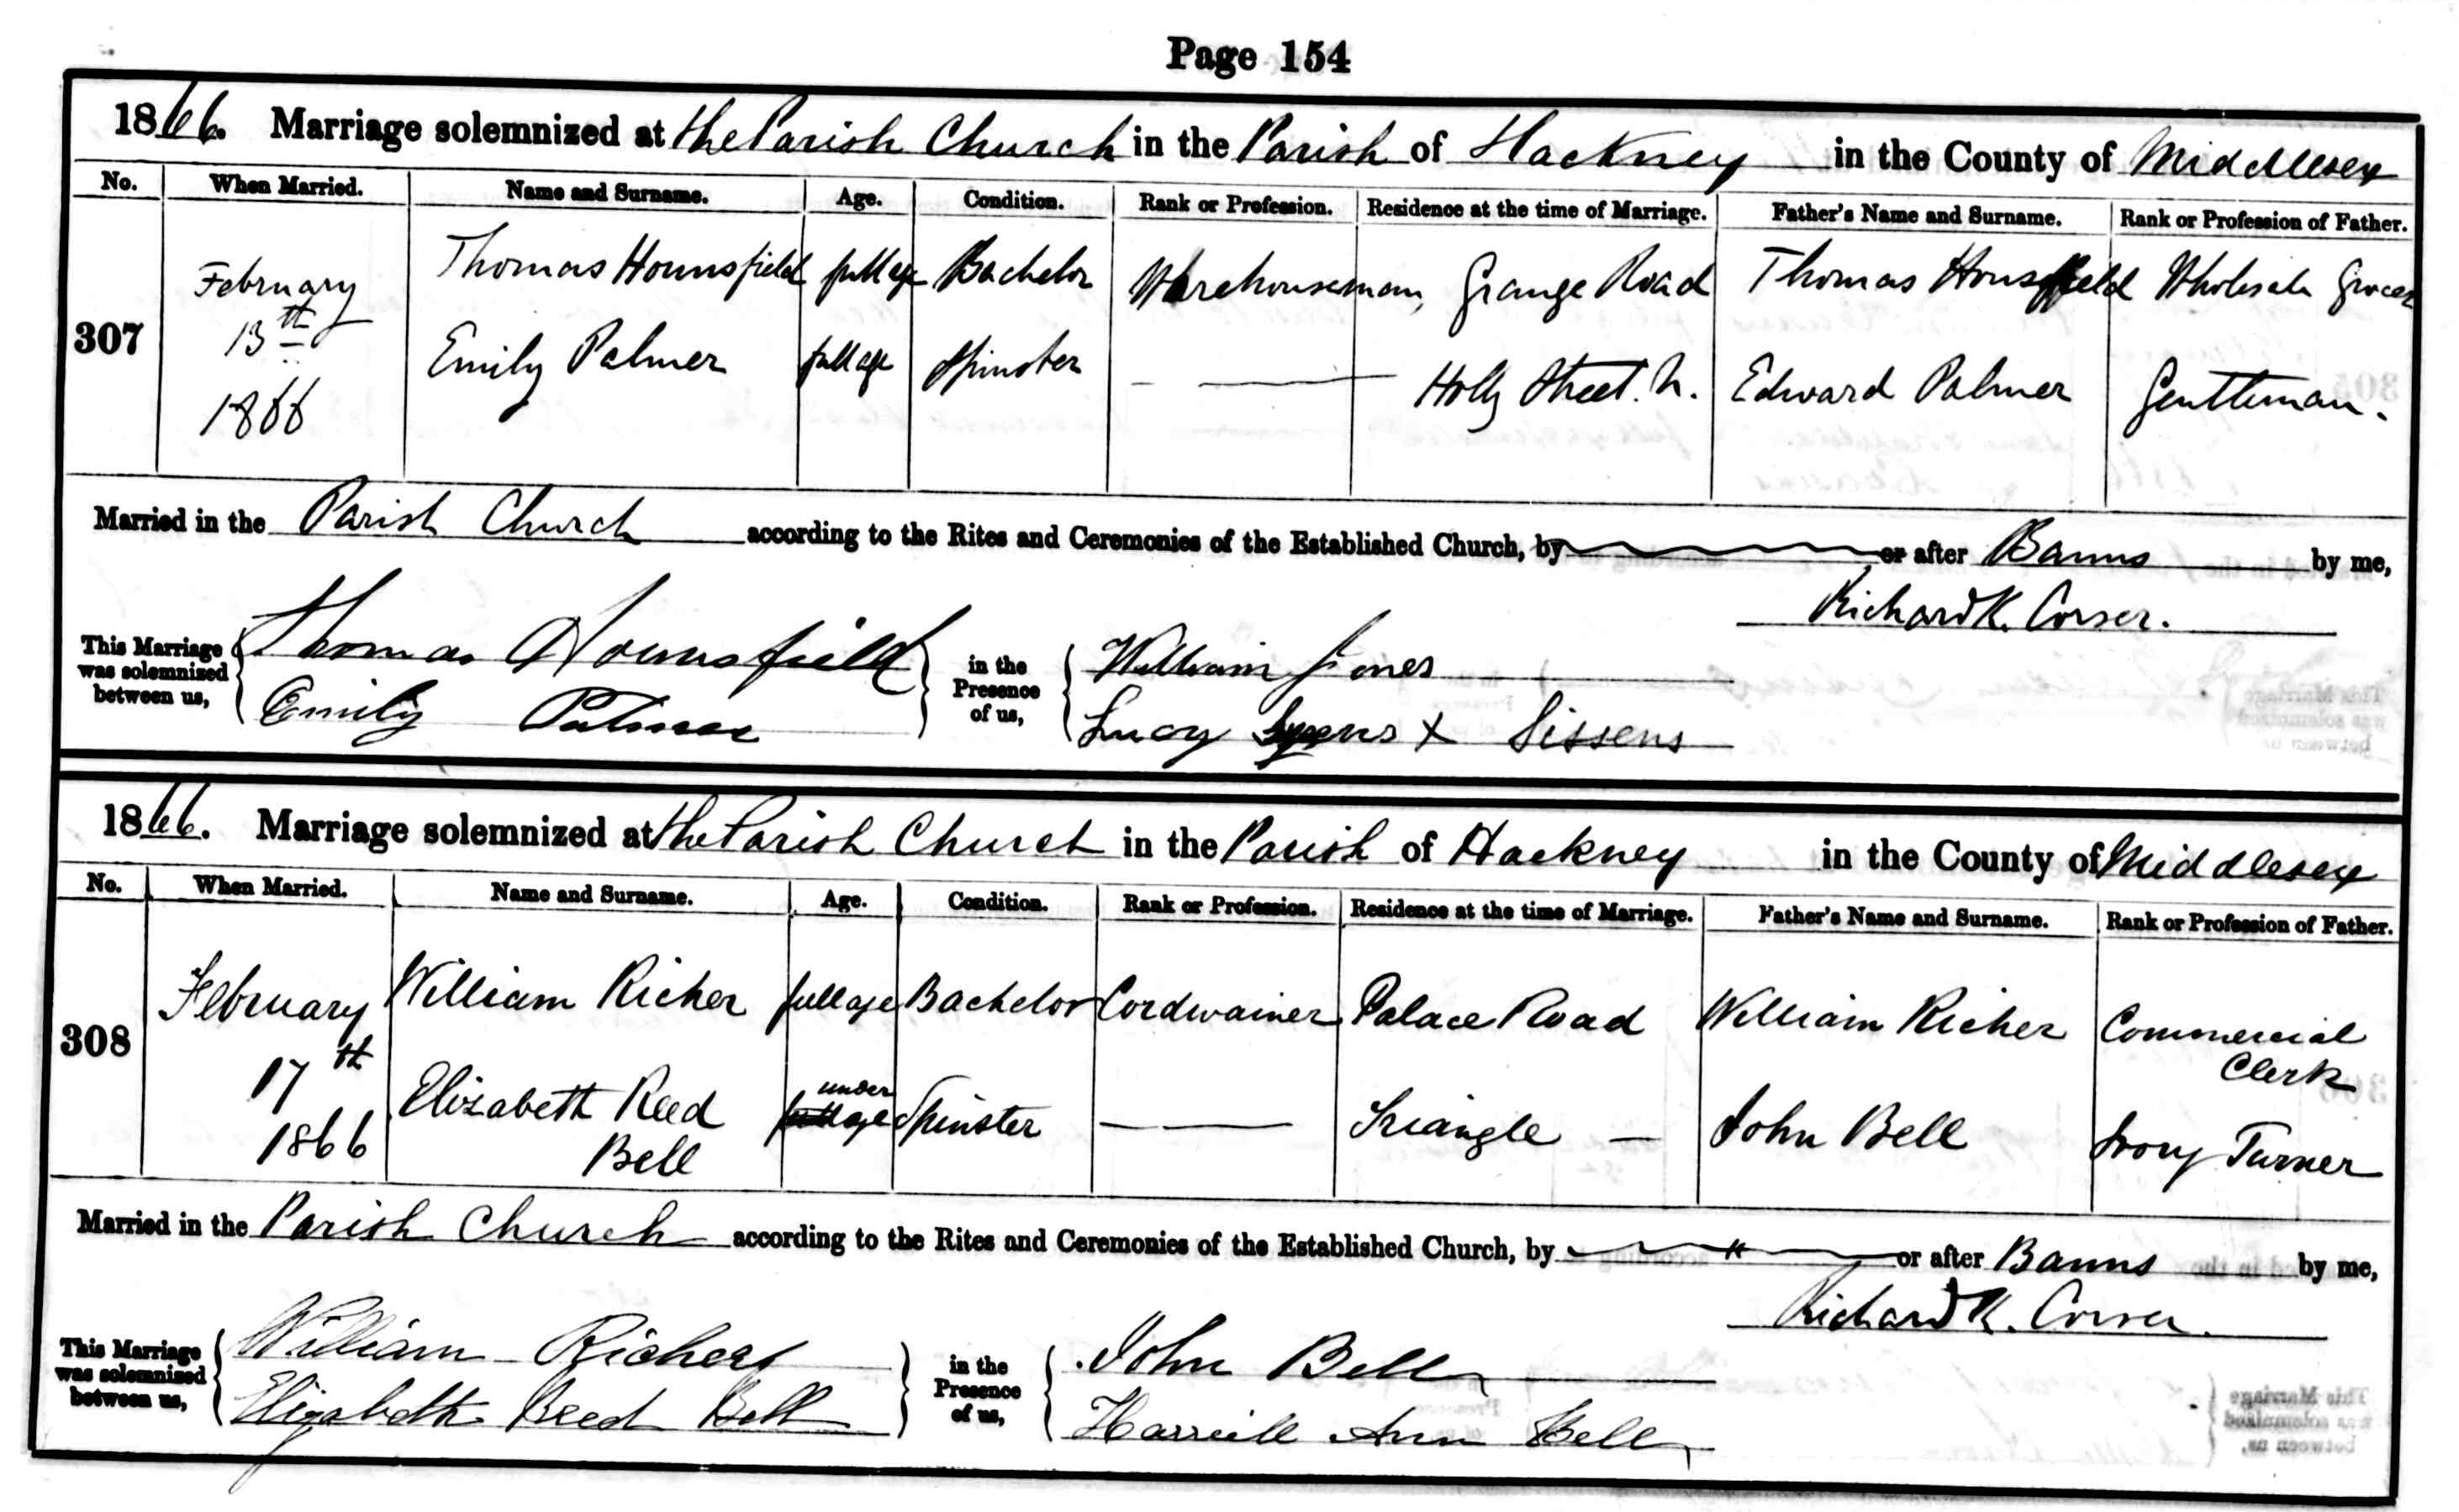 Page 154
1866. Marriage solemnized at the Parish Church in the Parish of Hackney in the County of Middlesex
No. When Married. Name and Surname. Age. Condition. Rank or Profession. Residence at the time of Marriage. Father's Name and Surname. Rank or Profession of Father.
Thomas Hounsfield full age Bachelor Warehouseman, Grange Road Thomas Hounsfield Wholesale Grocer
February
13th
307 Emily Palmer full age Spinster — — Holly Street. N. Edward Palmer Gentleman.
1866
Married in the Parish Church according to the Rites and Ceremonies of the Established Church, by or after Banns by me,
Richard K. Corser.
This Marriage was solemnized between us, Thomas Hounsfield in the Presence of us, William Jones
Emily Palmer Lucy x Sissens
1866. Marriage solemnized at the Parish Church in the Parish of Hackney in the County of Middlesex
No. When Married. Name and Surname. Age. Condition. Rank or Profession. Residence at the time of Marriage. Father's Name and Surname. Rank or Profession of Father.
February William Richer full age Bachelor Cordwainer Palace Road William Richer Commercial
Clerk
308 17th Elizabeth Reed under age Spinster — — Triangle — John Bell Ivory Turner
1866 Bell
Married in the Parish Church according to the Rites and Ceremonies of the Established Church, by " or after Banns by me,
Richard K. Corser.
This Marriage was solemnized between us, William Richer in the Presence of us, John Bell
Elizabeth Reed Bell Harriett Ann Bell